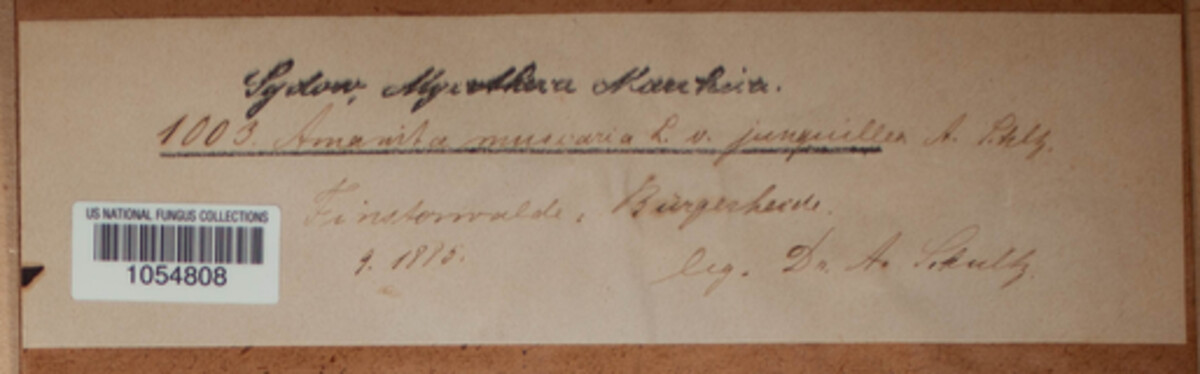 Sydow, Mycotheca Marchica.
1003. Amanita muscaria L. v. junquillea A. Schltz.
Finsterwalde, Bürgerheide.
9. 1885.
leg. Dr. A. Schultz.
US NATIONAL FUNGUS COLLECTIONS
1054808